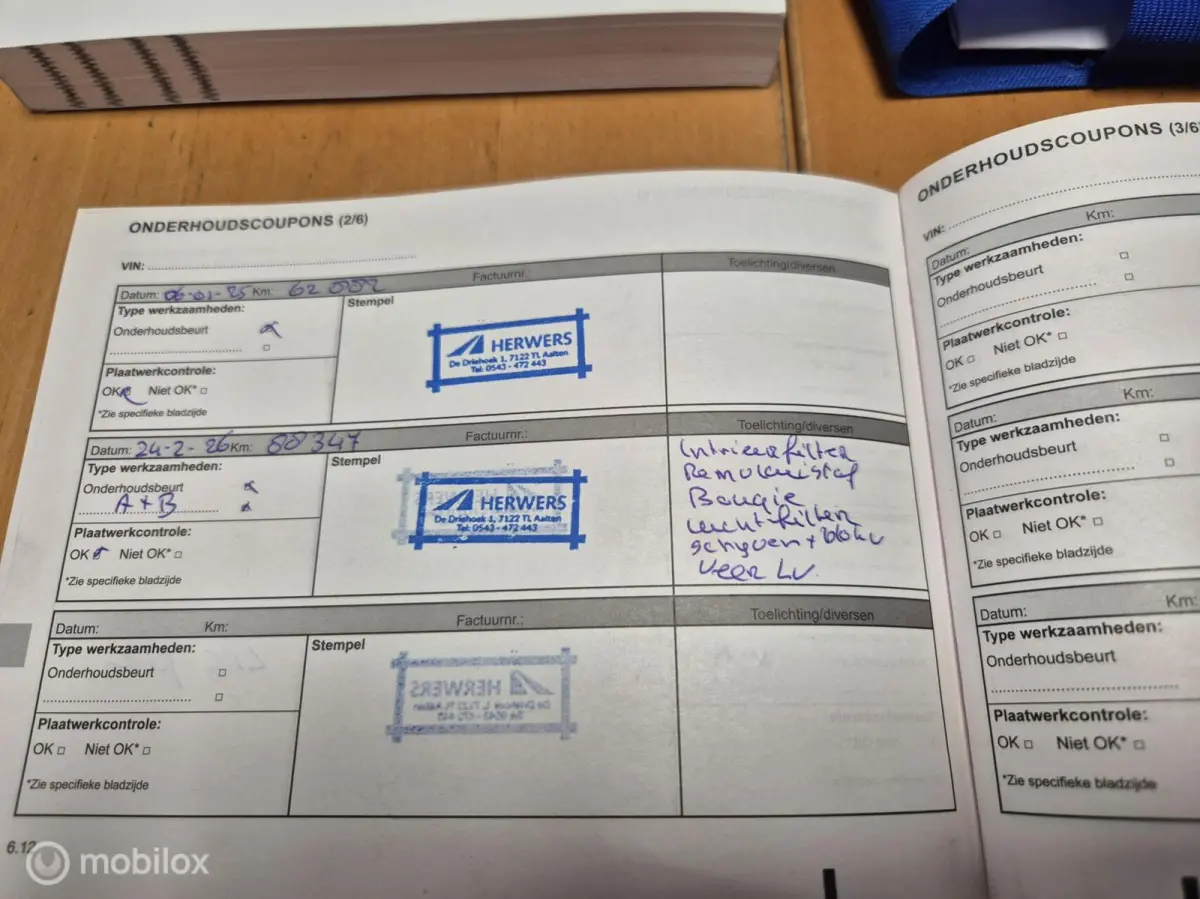 ONDERHOUDSCOUPONS (2/6)
VIN:
Datum: 06-01-25 Km: 62
Factuurnr.
Toelichting/diversen
Type werkzaamheden:
Onderhoudsbeurt
Plaatwerkcontrole:
OK Niet OK*
*Zie specifieke bladzijde
Stempel
HERWERS
De Driehoek 1, 7122 TL Aalten
Tel: 0543 - 472 443
Datum: 24-2-26 Km: 88347
Factuurnr.:
Toelichting/diversen
Type werkzaamheden:
Onderhoudsbeurt
A + B
Plaatwerkcontrole:
OK Niet OK*
*Zie specifieke bladzijde
Stempel
HERWERS
De Driehoek 1, 7122 TL Aalten
Tel: 0543 - 472 443
Intrieurfilter
Remvloeistof
Bougie
Luchtfilter
schijven + blokk
Veer LV.
Datum: Km:
Factuurnr.:
Toelichting/diversen
Type werkzaamheden:
Onderhoudsbeurt
Plaatwerkcontrole:
OK Niet OK*
*Zie specifieke bladzijde
Stempel
HERWERS
6.12
ONDERHOUDSCOUPONS (3/6)
VIN:
Datum: Km:
Type werkzaamheden:
Onderhoudsbeurt
Plaatwerkcontrole:
OK Niet OK*
*Zie specifieke bladzijde
Datum: Km:
Type werkzaamheden:
Onderhoudsbeurt
Plaatwerkcontrole:
OK Niet OK*
*Zie specifieke bladzijde
Datum: Km:
Type werkzaamheden:
Onderhoudsbeurt
Plaatwerkcontrole:
OK Niet OK*
*Zie specifieke bladzijde
mobilox